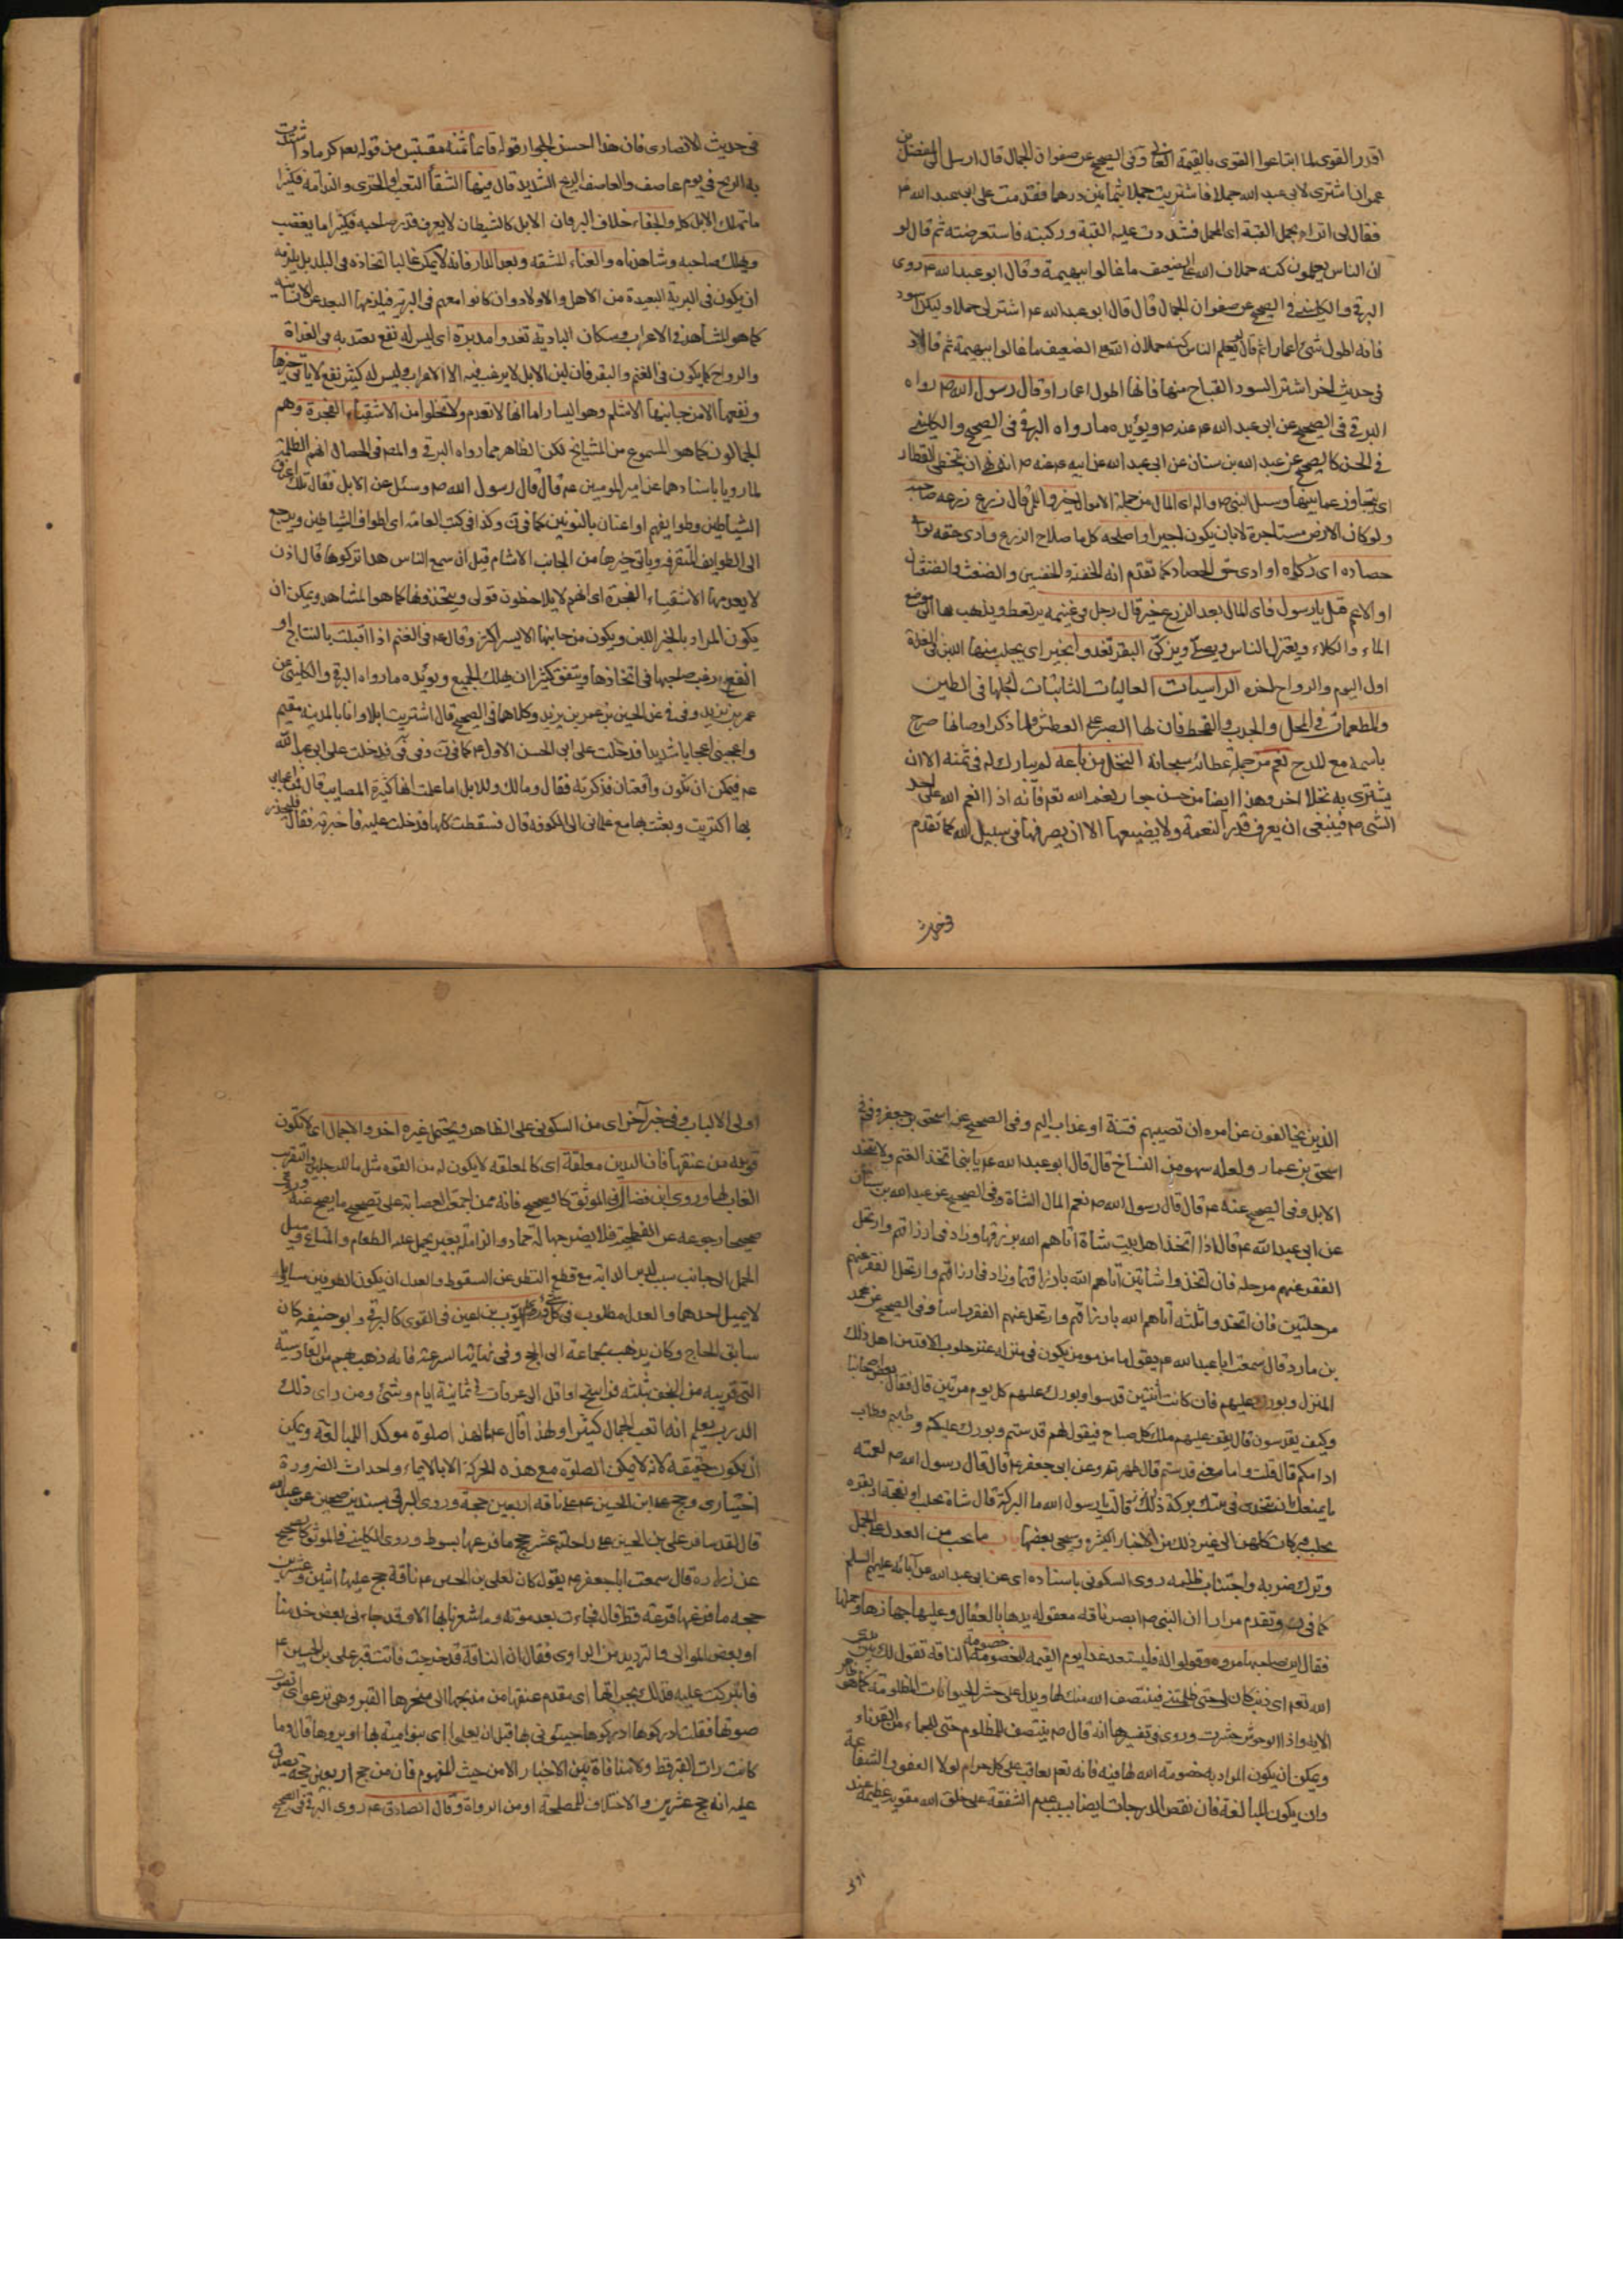 اقدر القوى لما ابتاعوا القوى بالقيمة الغالى وفى الصحيح عن صفوان الجمال قال ارسل الى المفضل بن
عمر ان اشترى لابى عبد الله جملا فاشتريت جملا بثمانين درهما فقدمت على ابى عبد الله ع
فقال لى اتراه يحمل القبة اى المحمل فشددت عليه القبة وركبته فاستعرضته ثم قال لو
ان الناس يعلمون كنه حملان الله على الضعيف ما غالوا ببهيمة وقال ابو عبد الله ع روى
البرقى والكلينى فى الصحيح عن صفوان الجمال قال قال ابو عبد الله ع اشتر لى جملا وليكن اسود
فانه اطول شئ اعمارا ثم قال لو يعلم الناس كنه حملان الله على الضعيف ما غالوا ببهيمة ثم قال
فى حديث اخر اشتر السود القباح منها فانها اطول اعمارا وقال رسول الله ص رواه
البرقى فى الصحيح عن ابى عبد الله ع عنه ص ويؤيده ما رواه البرقى فى الصحيح والكلينى
فى الحسن كالصحيح عن عبد الله بن سنان عن ابى عبد الله عن ابيه ع عنه ص انه نهى ان يتخطى القطار
اى يتجاوز عما بينها وسئل النبى ص واله اى المال من جملة الاموال خير وانفع قال زرع زرعه صاحبه
ولو كان الارض مستاجرة لا بان يكون اجيرا واصلحه كل ما صلاح الزرع وادى حقه يوم
حصاده اى زكوته او ادى حق الحصاد كما تقدم انه الحفنة والحفنتين والضغث والضغثان
او الاعم قيل يا رسول فاى المال بعد الزرع خير قال رجل فى غنيمه يرتعط ويذهب بها الى موضع
الماء والكلاء ويعتزل الناس ويصلى ويزكى البقر تغدو بخير اى يحلب منها اللبن فى الغداة
اول اليوم والرواح اخره الراسيات العاليات الثابتات ارجلها فى الطين
والمطعمات فى المحل والجدب والقحط فان لها الصبر على العطش ولما ذكر اوصافها صرح
باسمه مع المدح نعم من جملة عطائه سبحانه النخل من باعه لم يبارك له فى ثمنه الا ان
يشترى به نخلا اخر وهذا ايضا من حسن جوار نعم الله تعالى فانه اذا انعم الله على احد
الشئ ص فينبغى ان يعرف قدر النعمة ولا يضيعها الا ان يصرفها فى سبيل الله كما تقدم
فى حديث الانصارى فان هذا الحسن الجوار قوله فانما ثمنه مقتبس من قوله تعالى كرماد اشتدت
به الريح فى يوم عاصف والعاصف الريح الشديد قال فيها الشقأ التعب او الخزى والندامة فكثيرا
ما تهلك الابل كلا والجفاء خلاف البر فان الابل كالشيطان لا يعرف قدر صاحبه فكثيرا ما يغضب
ويهلك صاحبه وشاهدناه والعناء المشقه وبعد الدار فانه لا يمكن غالبا اتخاذه فى البلد بل يلزمه
ان يكون فى البرية البعيدة من الاهل والاولاد وان كانوا معهم فى البرية فيلزمها البعد عن الانسانية
كما هو المشاهد فى الاعراب وسكان البادية تغدو مدبرة اى ليس له نفع يعتد به فى الغداة
والرواح كما يكون فى الغنم والبقر فان لبن الابل لا يرغب فيه الا الاعراب وليس له كثير نفع لا ياتى خيرها
ونفعها الا من جانبها الاشئم وهو اليسار اما انها لا تعدم ولا تخلوا من الاشقياء الفجرة وهم
الجمالون كما هو المسموع من المشايخ لكن الظاهر مما رواه البرقى والمص فى الخصال انهم الظلمة
لما رويا باسنادهما عن امير المومنين ع قال قال رسول الله ص وسئل عن الابل فقال تلك اعنان
الشياطين وطوايفهم او اعنان بالنونين كما فى وكذا فى كتب العامه اى اطواف الشياطين ويرجع
الى الطوايف المتفرقه وياتى خيرها من الجانب الاشام قيل ان سمع الناس هذا تركوها قال اذن
لا يعدمها الاشقياء الفجرة اى انهم لا يلاحظون قولى ويتخذونها كما هو المشاهد ويمكن ان
يكون المراد بالخير اللبن ويكون من جانبها الايسر اكثر وقال ع فى الغنم اذا اقبلت بالنتاج او
النفع يرغب صاحبها فى اتخاذها ويتفق كثيرا ان يهلك الجميع ويؤيده ما رواه البرقى والكلينى عن
عمر بن يزيد وفى فى عن الحسين بن عمر بن يزيد وكلاهما فى الصحيح قال اشتريت ابلا وانا بالمدينه مقيم
واعجبنى اعجابا شديدا فدخلت على ابى الحسن الاول ع كما فى وفى فى فدخلت على ابى عبد الله
ع فيمكن ان تكون واقعتان فذكرته فقال ومالك وللابل اما علمت انها كثيرة المصايب قال فمن اعجابى
بها اكتريت وبعثت بها مع غلمانى الى الكوفه قال فسقطت كلها فدخلت عليه فاخبرته فقال فليحذر
الذين يخالفون عن امره ان تصيبهم فتنة او عذاب اليم وفى الصحيح عن اسحق بن جعفر وفى
اسحق بن عمار ولعله سهو من النساخ قال قال ابو عبد الله ع يا بنى اتخذ الغنم ولا تتخذ
الابل وفى الصحيح عنه ع قال قال رسول الله ص نعم المال الشاة وفى الصحيح عن عبد الله بن سنان
عن ابى عبد الله ع قال اذا اتخذ اهل بيت شاة اتاهم الله برزقها وزاد فى ارزاقهم وارتحل
الفقر عنهم مرحله فان اتخذوا شاتين اتاهم الله بارزاقهما وزاد فى ارزاقهم وارتحل الفقر عنهم
مرحلتين فان اتخذوا ثلثه اتاهم الله بارزاقهم وارتحل عنهم الفقر راسا وفى الصحيح عن محمد
بن مارد قال سمعت ابا عبد الله ع يقول ما من مومن يكون فى منزله عنز حلوب الا قدس اهل ذلك
المنزل وبورك عليهم فان كانت اثنتين قدسوا وبورك عليهم كل يوم مرتين قال فقال بعض اصحابنا
وكيف يقدسون قال يقف عليهم ملك كل صباح فيقول لهم قدستم وبورك عليكم وطبتم وطاب
ادامكم قال قلت وما معنى قدستم قال طهرتم وعن ابى جعفر ع قال قال رسول الله ص لعمته
ما يمنعك ان تتخذى فى بيتك بركة قالت يا رسول الله ما البركة قال شاة تحلب او نعجة او بقرة
تحلب فبركات كلهن الى غير ذلك من الاخبار الكثيره وسيجئ بعضها باب ما يجب من العدل على الجمل
وترك ضربه واجتناب ظلمه روى السكونى باسناده اى عن ابى عبد الله عن آبائه عليهم السلم
كما فى وتقدم مرارا ان النبى ص ابصر ناقه معقوله يدها بالعقال وعليها جهازها وحملها
فقال اين صاحبها مروه وقولوا له فليستعد غدا يوم القيمه للخصومة الناقه تقول لك بين يدى
الله تعالى اى ذنب كان لى حتى ظلمتنى فينتصف الله منك لها ويدل على حشر الحيوانات المظلومة كما هو ظاهر
الايه واذا الوحوش حشرت وروى فى تفسيرها انه قال ص ينتصف للمظلوم حتى للجماء من القرناء
ويمكن ان يكون المراد به خصومة الله لها فيه فانه تعالى يعاقب على كل حرام لولا العفو والشفاعة
وان يكون المبالغة فان نقص الدرجات ايضا بسبب عدم الشفقة على خلق الله عقوبه عظيمه عند
اولى الالباب وفى خبر آخر اى من السكونى على الظاهر ويحتمل غيره اخروا الاحمال اى لا تكون
قريبه من عنقها فان اليدين معلقة اى كالمعلقه لا يكون له من القوه مثل ما للرجلين
الغاب لها وروى ابن فضال فى الموثق كالصحيح فانه ممن اجمعت العصابة على تصحيح ما يصح عنه
صحيحا رجوعه عن الفطحية فلا يضر جهالة حماد والزامله بعير يحمل عليه الطعام والمتاع وميل
الحمل الى جانب سبب لدبر الدابه مع قطع النظر عن السقوط والعدل ان يكون الطرفين مساويا
لا يميل احدهما والعدل مطلوب فى كل شئ وروى ايوب بن اعين فى القوى كالبرقى وابو حنيفه كان
سابق الحاج وكان يذهب بجماعة الى الحج وفى نهايتنا سرعته فانه ذهب بهم من القادسية
التى قريبه من النجف بثلثه فراسخ او اقل الى عرفات فى ثمانية ايام وشئ ومن راى ذلك
الدرب يعلم انه اتعب الجمال كثيرا ولهذا قال ع ما لهذا صلوة موكدا للمبالغة ويمكن
ان يكون حقيقه لانه لا يمكن الصلوة مع هذه الحركة الا بالايماء واحداث الضرورة
اختيارى وحج على ابن الحسين ع على ناقه اربعين حجة وروى البرقى بسندين صحيحين عن ابى عبد الله
قال لقد سافر على بن الحسين ع على راحلته عشر حجج ما قرعها بسوط وروى الكلينى فى الموثق كالصحيح
عن زراره قال سمعت ابا جعفر ع يقول كان لعلى بن الحسين ع ناقة حج عليها اثنين وعشرين
حجه ما قرعها قرعة قط قال فجاءت بعد موته وما شعرنا بها الا وقد جاءنى بعض خدمنا
او بعض الموالى والترديد من الراوى فقال ان الناقة قد خرجت فاتت قبر على بن الحسين ع
فانبركت عليه فدلكت بجرانها اى مقدم عنقها من مذبحها الى منحرها القبر وهى ترغو اى تصوت
صوتها فقلت ادركوها ادركوها جيئونى بها قبل ان يعلموا اى بنو امية بها او يروها قال وما
كانت رات القبر قط ولا منافاة بين الاخبار الا من حيث المفهوم فان من حج اربعين حجة يصدق
عليه انه حج عشرين والاختلاف للمصلحة او من الرواة وقال الصادق ع روى البرقى فى الصحيح